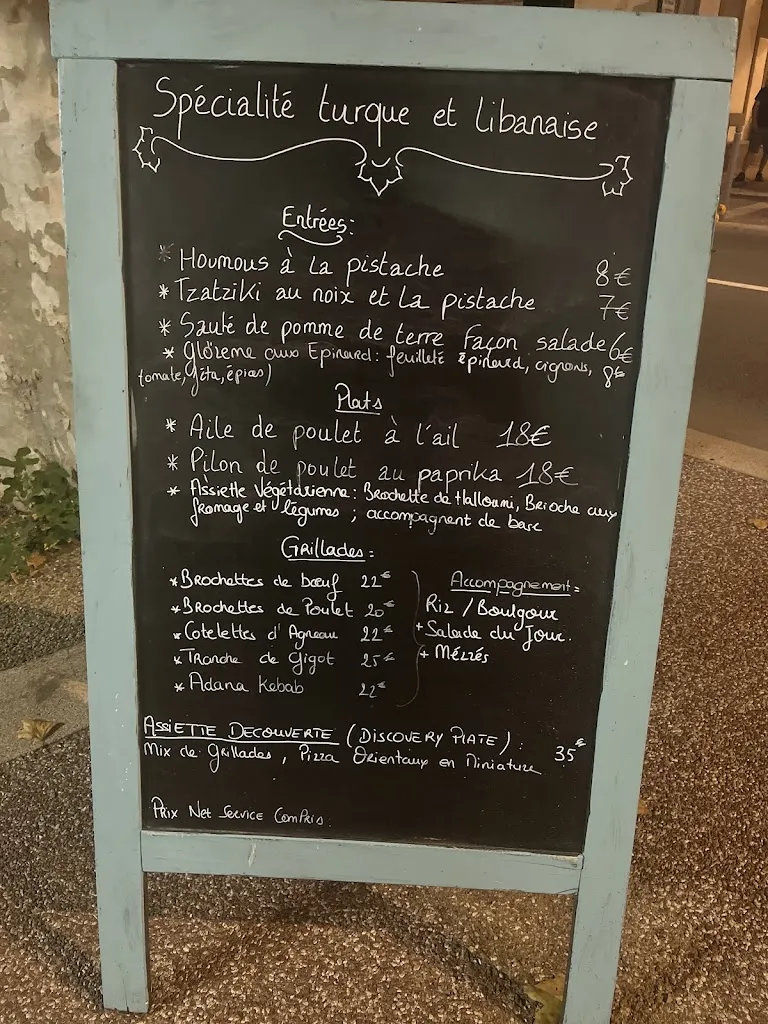 Spécialité turque et libanaise
Entrées:
* Houmous à la pistache 8€
* Tzatziki au noix et la pistache 7€
* Sauté de pomme de terre façon salade 6€
* Glöreme aux Epinard: feuilleté épinard, oignons, 8€
tomate, féta, épices)
Plats
* Aile de poulet à l'ail 18€
* Pilon de poulet au paprika 18€
* Assiette Végétarienne: Brochette de Halloumi, Brioche aux
fromage et légumes ; accompagnent de base
Grillades:
* Brochettes de bœuf 22€
* Brochettes de Poulet 20€
* Cotelettes d'Agneau 22€
* Tranche de Gigot 25€
* Adana Kebab 22€
Accompagnement:
Riz / Boulgour
+ Salade du Jour.
+ Mézzés
ASSIETTE DECOUVERTE (DISCOVERY PLATE):
Mix de Grillades, Pizza Orientaux en Miniature 35€
Prix Net Service Compris.